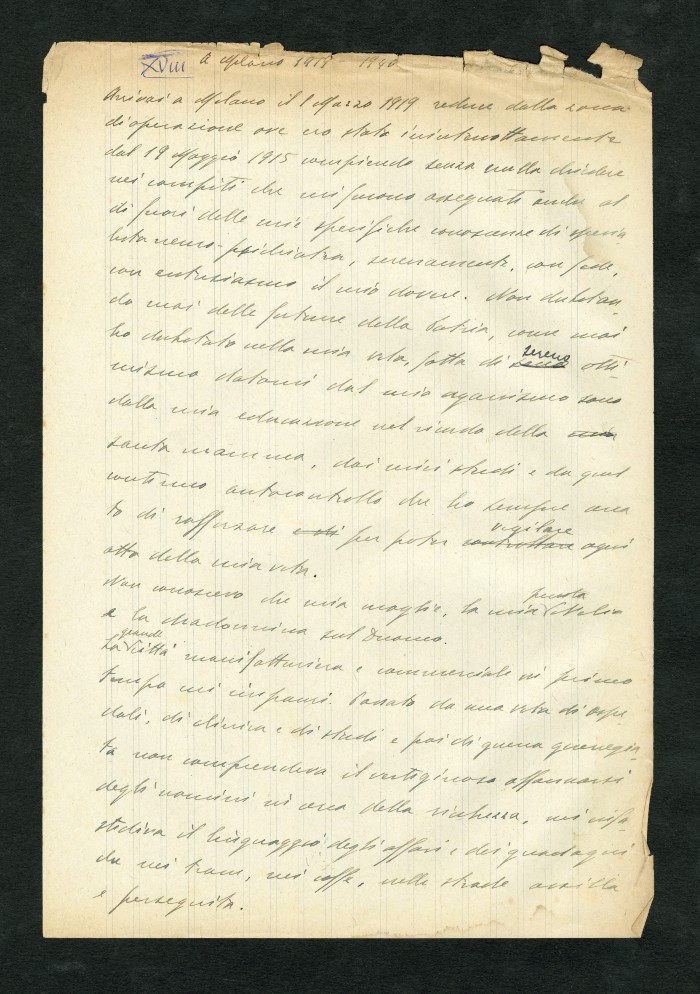 XVIII a Milano 1919 - 1940
Arrivai a Milano il 1 Marzo 1919 reduce dalla zona
di operazione ove ero stato ininterrottamente
dal 19 Maggio 1915 compiendo senza nulla chiedere
nei compiti che mi furono assegnati anche al
di fuori delle mie specifiche conoscenze di specia
lista neuro-psichiatra, serenamente, con fede,
con entusiasmo il mio dovere. Non dubitan
do mai delle fortune della Patria, come mai
ho dubitato nella mia vita, fatta di sereno otti
mismo datomi dal mio organismo sano
dalla mia educazione nel ricordo della mia
santa mamma, dai miei studi e da quel
continuo autocontrollo che ho sempre cerca
to di rafforzare e di per poter vigilare controllare ogni
atto della mia vita.
Non conoscevo che mia moglie, la mia piccola
e la Madonnina sul Duomo.
La grande città manifatturiera e commerciale in primo
tempo mi impaurì. Passato da una vita di ospe
dali, di clinica e di studi e poi di guerra guerreggia
ta non comprendeva il vertiginoso affannarsi
degli uomini in cerca della ricchezza, mi infa
stidiva il linguaggio degli affari e dei guadagni
che nei tram, nei caffè, nelle strade assilla
e perseguita.